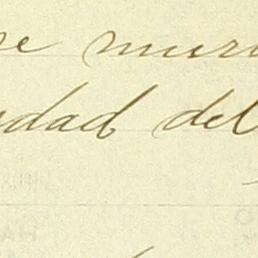 re muri
dad del